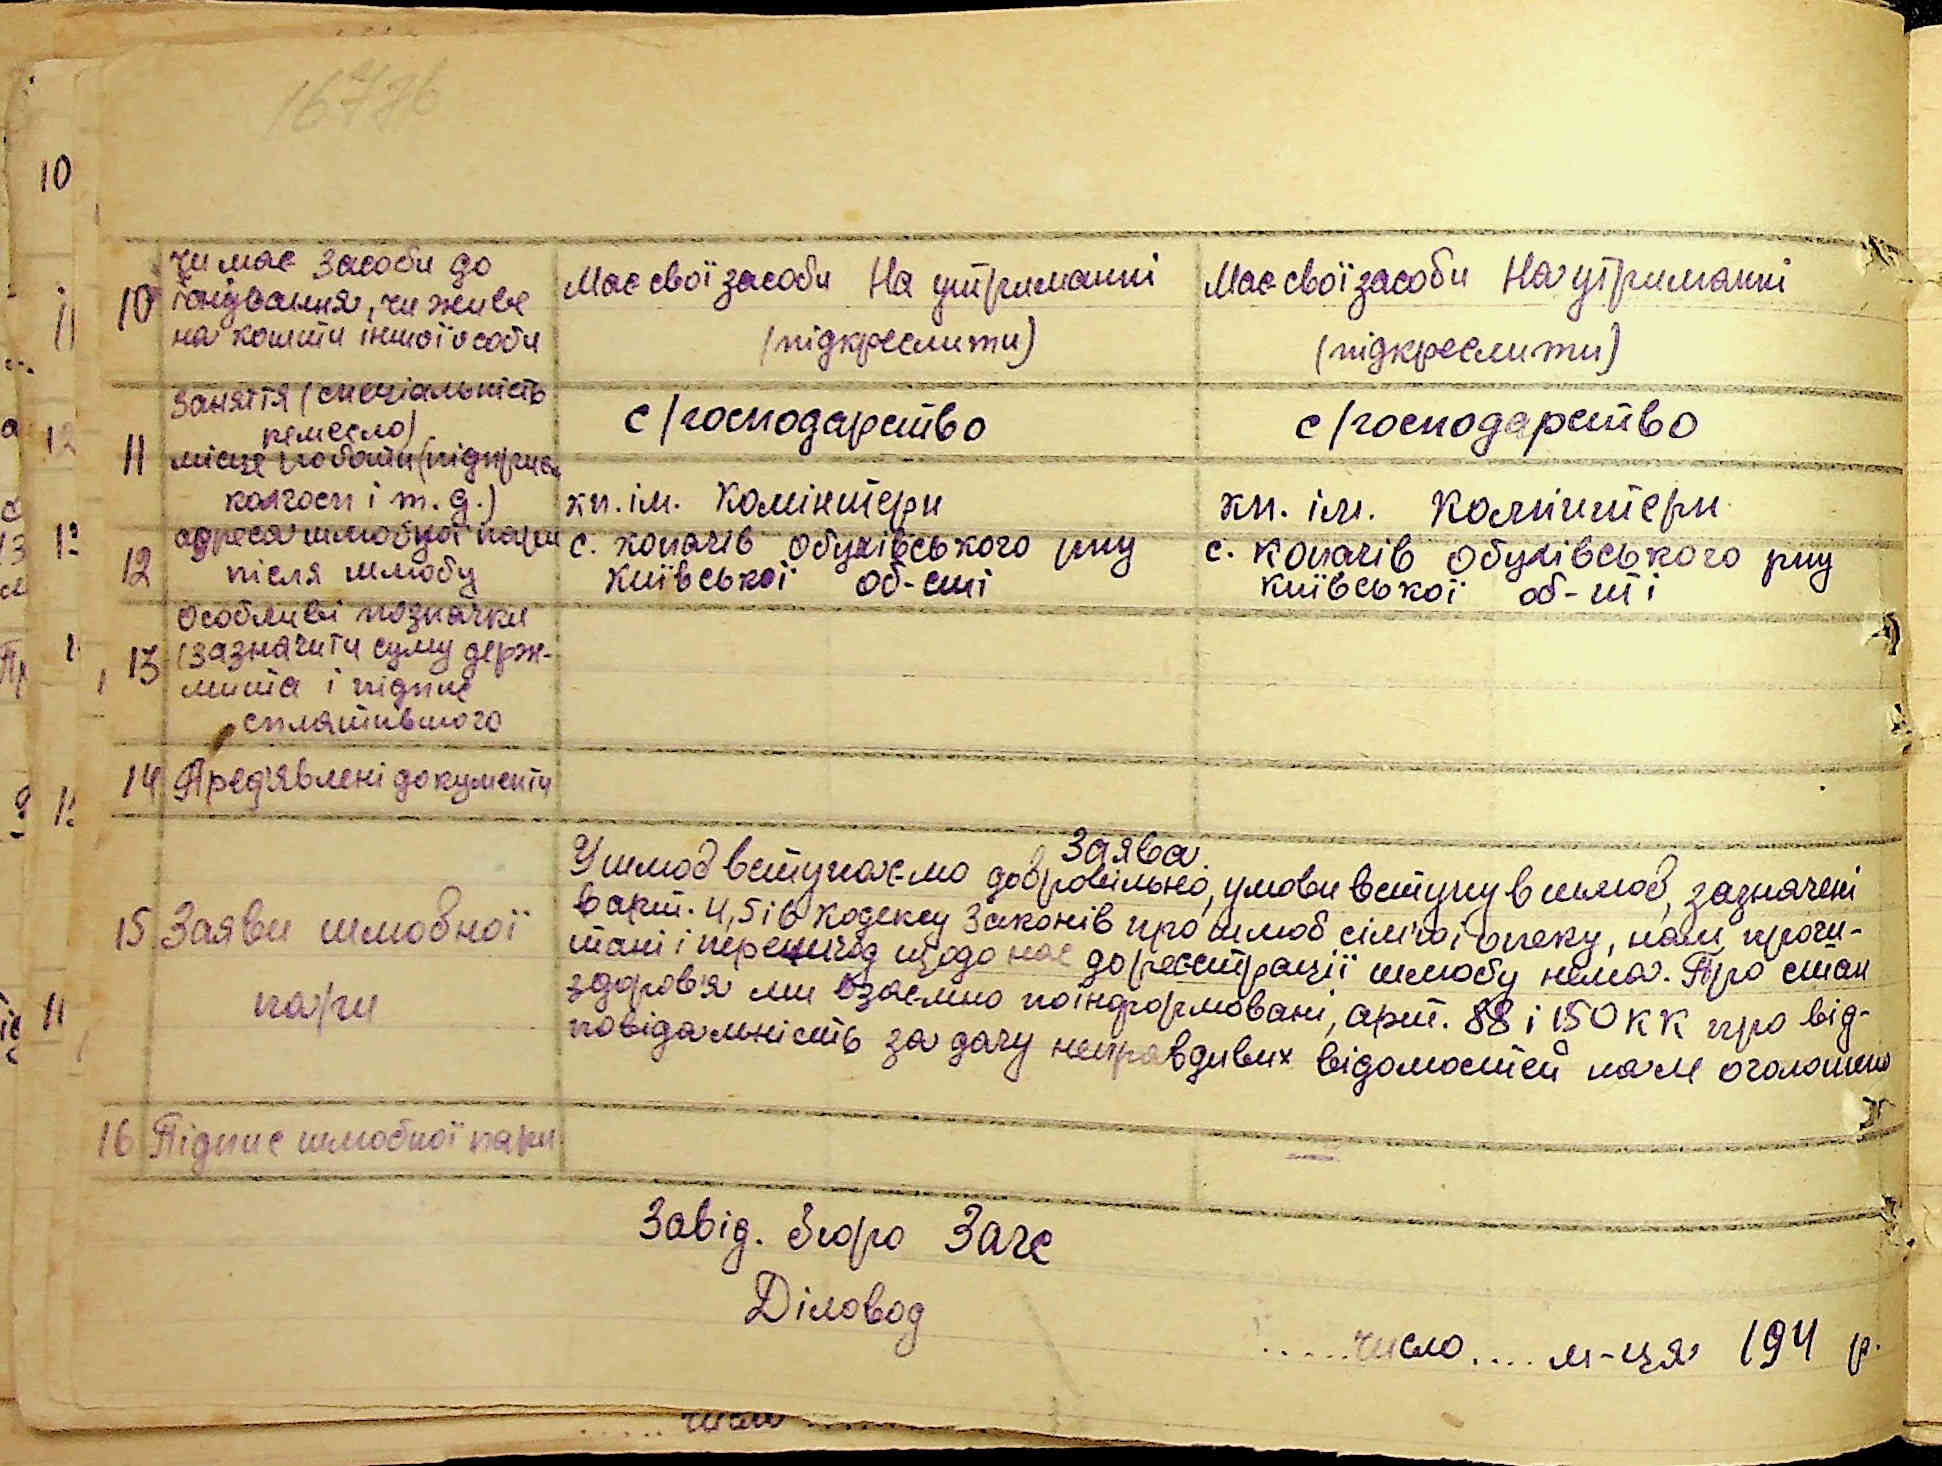 10
чи має засоби до
існування, чи живе
на кошти іншої особи
Має свої засоби На утриманні
(підкреслити)
Має свої засоби На утриманні
(підкреслити)
11
Заняття (спеціальність
ремесло)
с/господарство
с/господарство
місце роботи (підприєм
колгосп і т. д.)
кп. ім. Комінтерн
кп. ім. Комінтерн
12
адреса шлюбної пари
після шлюбу
с. Копачів Обухівського рну
Київської об-сті
с. Копачів Обухівського рну
Київської об-ті
13
Особливі позначки
(зазначити суму держ-
мита і підпис
сплатившого
14 Пред'явлені документи
15 Заяви шлюбної
пари
Заява.
У шлюб вступаємо добровільно, умови вступу в шлюб, зазначені
в арт. 4, 5 і 6 Кодексу Законів про шлюб сім'ю і опеку, нам прочи-
тані і перешкод щодо нас до реєстрації шлюбу нема. Про стан
здоров'я ми взаємно поінформовані, арт. 88 і 150 КК про від-
повідальність за дачу неправдивих відомостей нам оголошено
16 Підпис шлюбної пари
Завід. Бюро Загс
Діловод
.....число.... м-ця 194 р.
..... число